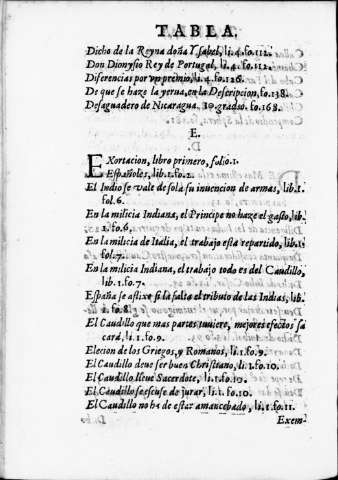 TABLA.
Dicho de la Reyna doña Ysabel, li.4.fo.112.
Don Dionysio Rey de Portugal, li.4.fo.112.
Diferencias por vn premio, li.4.fo.126.
De que se haze la yerua, en la Descripcion, fo.138.
Desaguadero de Nicaragua. 10. grados. fo.168.
E.
EXortacion, libro primero, folio.1.
Españoles, lib.1.fo.2.
El Indio se vale de sola su inuencion de armas, lib.1.
fol.6.
En la milicia Indiana, el Principe no haze el gasto, lib.
1.fo.6.
En la milicia de Italia, el trabajo esta repartido, lib.1.
fol.7.
En la milicia Indiana, el trabajo todo es del Caudillo,
lib.1.fo.7.
España se aflixe si la falta el tributo de las Indias, lib.
1.fo.8.
El Caudillo que mas partes tuuiere, mejores efectos sa
cará, li.1.fo.9.
Elecion de los Griegos, y Romanos, li.1.fo.9.
El Caudillo deue ser buen Christiano, li.1.fo.10.
El Caudillo lleue Sacerdote, li.1.fo.10.
El Caudillo se escuse de jurar, li.1.fo.10.
El Caudillo no ha de estar amancebado, li.1.fo.11.
Exem-